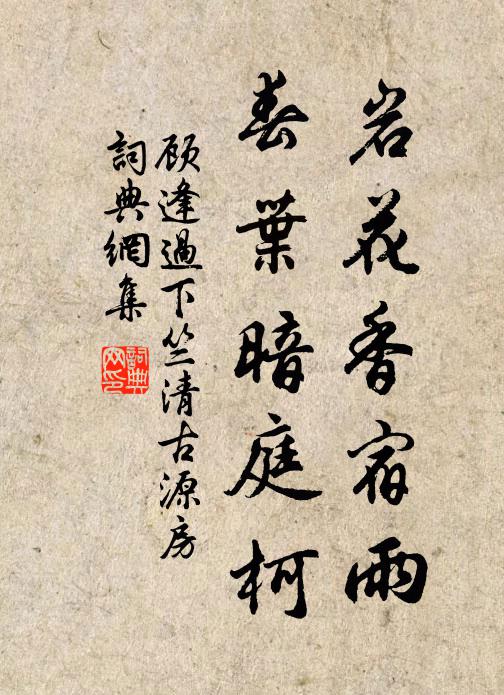 岩花香宿雨
春葉暗庭柯
顾逢過下竺清古源房
詞典網集
詞典網印